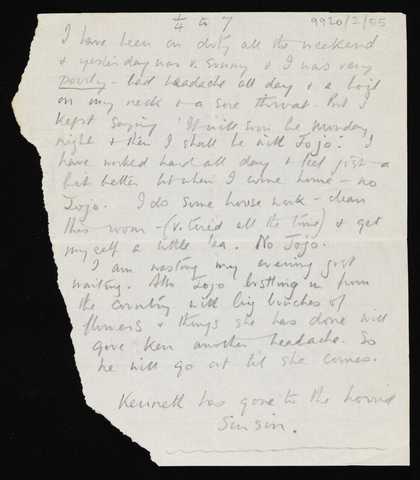 ¼ to 7
9920/2/55
I have been on duty all the weekend
& yesterday was v. sunny & I was very
poorly - bad headache all day & a boil
on my neck & a sore throat. But I
kept saying 'It will soon be Monday
night & then I shall be with Jojo'. I
have worked hard all day & feel just a
bit better but when I come home - no
Jojo. I do some house work - clean
this room - (v. tired all the time) & get
myself a little tea. No Jojo.
I am wasting my evening just
waiting. Jojo in from
the country with big bunches of
flowers & things she has done will
give Ken another headache. So
he will go out til she comes.
Kenneth has gone to the horrid
Sin sin.